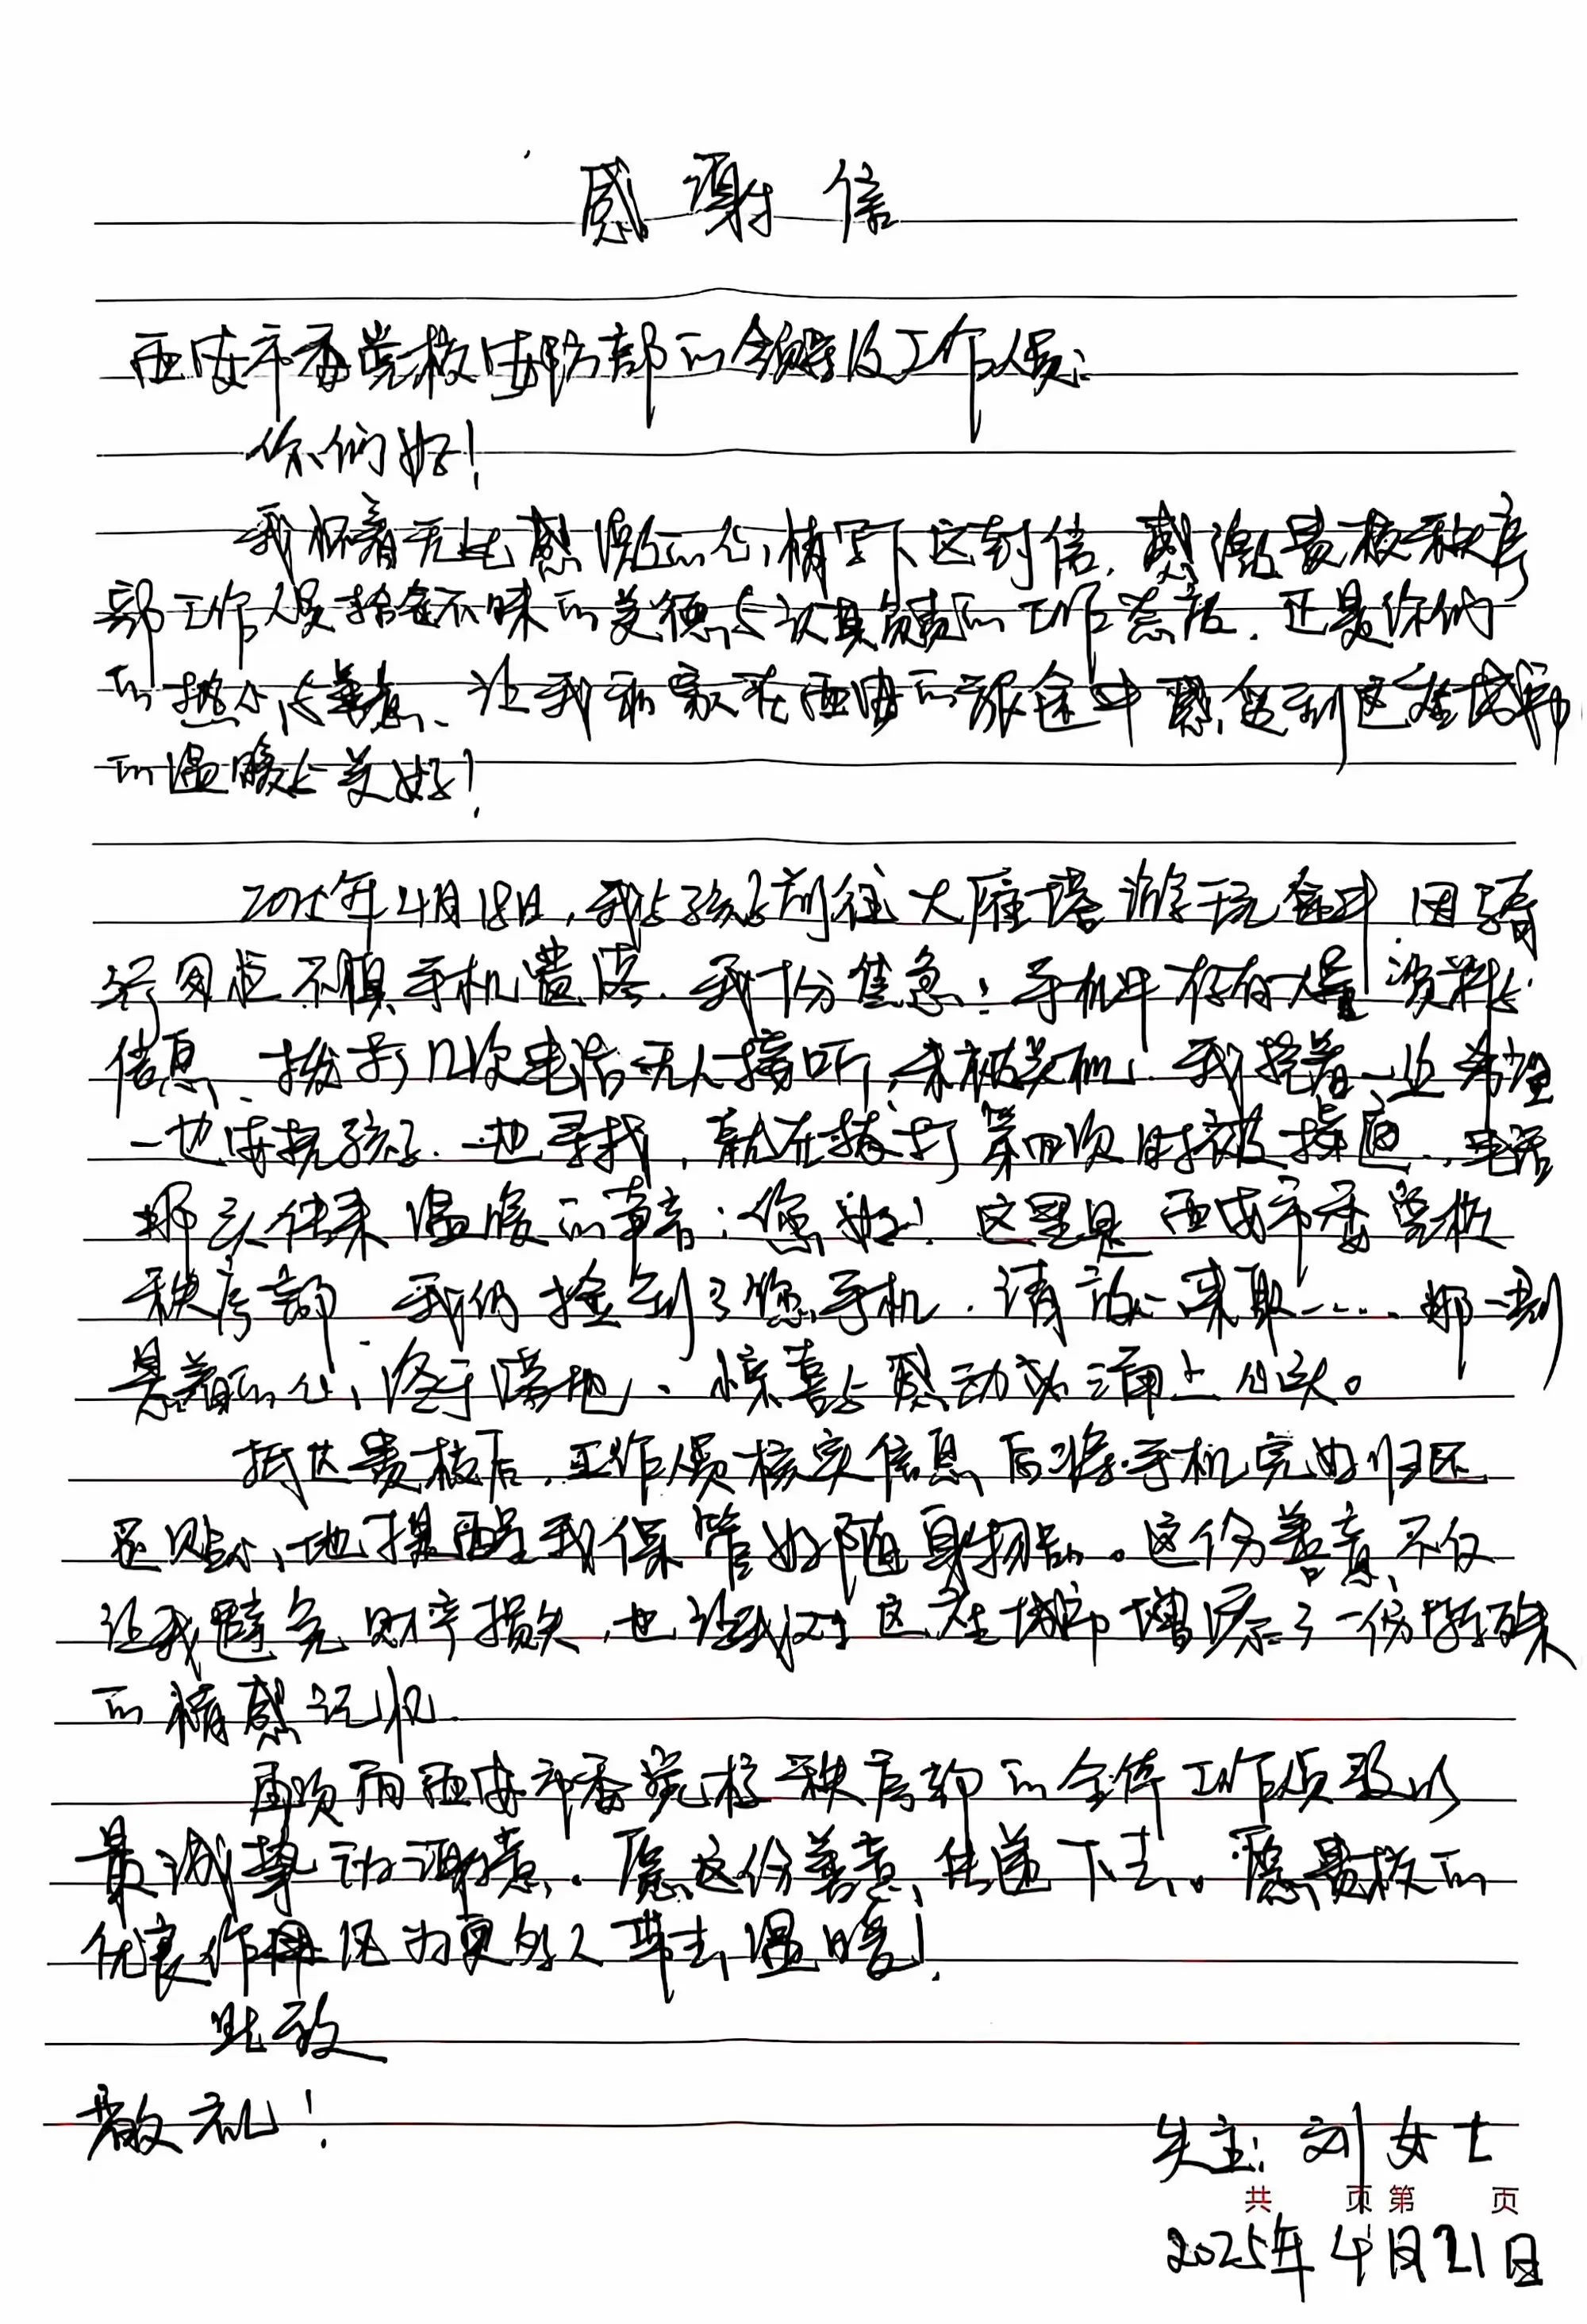 感谢信
西安市委党校安防部的领导及工作人员:
你们好!
我怀着无比感激的心情写下这封信,感激贵校秩序
部工作人员拾金不昧的美德与认真负责的工作态度.正是你们
的热心与善意、让我和家在西安的旅途中感受到这座城市
的温暖与美好!
2025年4月18日,我与孩子前往大雁塔游玩途中因骑
行 不慎手机遗落.我十份焦急:手机中存有大量资料与
信息、拨打了几次电话无人接听,未被关机.我抱着一丝希望
一边安抚孩子.一边寻找,就在拨打第四次时被接通.,电话
那头传来温暖的声音:您好!这里是西安市委党校
秩序部.我们捡到了您手机.请放心来取…..那一刻
悬着的心,终于落地、惊喜与感动齐涌上心头。
抵达贵校后.工作人员核实信息后将手机完好归还
还贴心地提醒我保管好随身物品。这份善意不仅
让我避免财产损失,也让我对这座城市增添了一份特殊
的情感记忆.
再次向西安市委党校秩序部的全体工作人员致以
最诚挚 谢意.愿这份善意传递下去。愿贵校的
优良作风 为更多人带去温暖!
此致
敬礼!
失主:刘女士
共 页 第 页
2025年4月21日